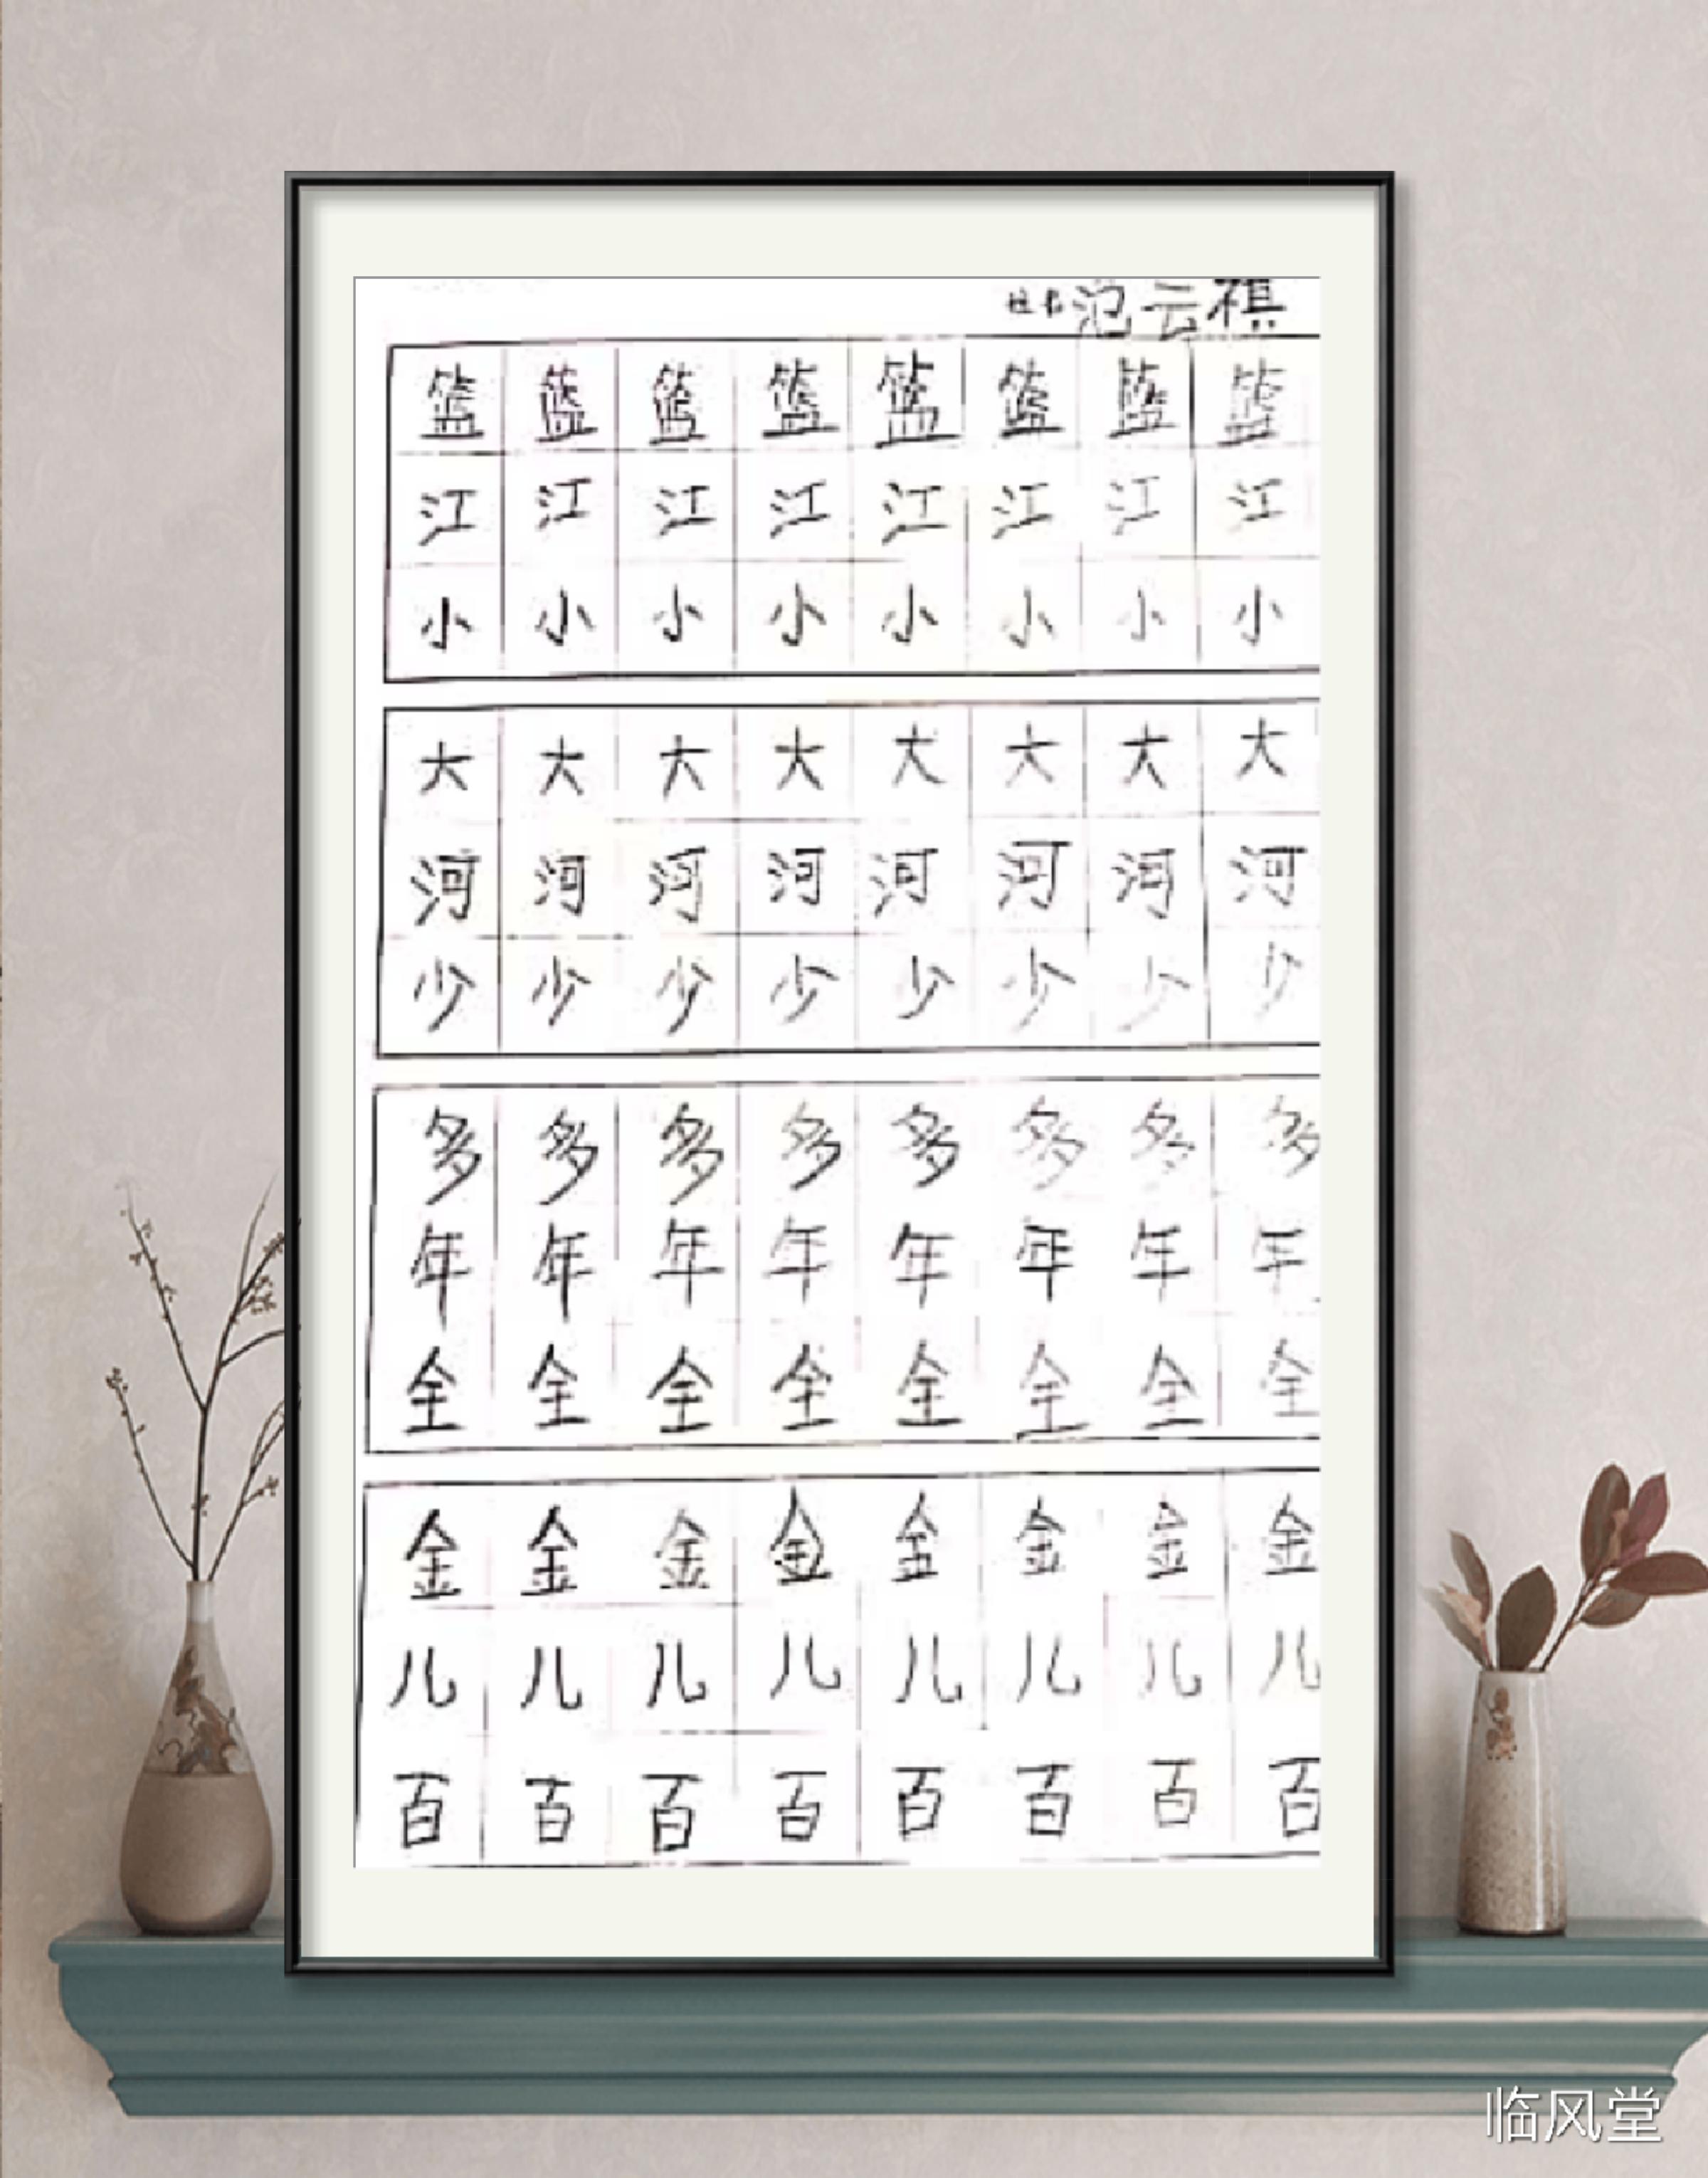 范云祺
篮 篮 篮 篮 篮 篮 篮 篮
江 江 江 江 江 江 江 江
小 小 小 小 小 小 小 小
大 大 大 大 大 大 大 大
河 河 河 河 河 河 河 河
少 少 少 少 少 少 少 少
多 多 多 多 多 多 多 多
年 年 年 年 年 年 年 年
全 全 全 全 全 全 全 全
金 金 金 金 金 金 金 金
儿 儿 儿 儿 儿 儿 儿 儿
百 百 百 百 百 百 百 百
临风堂